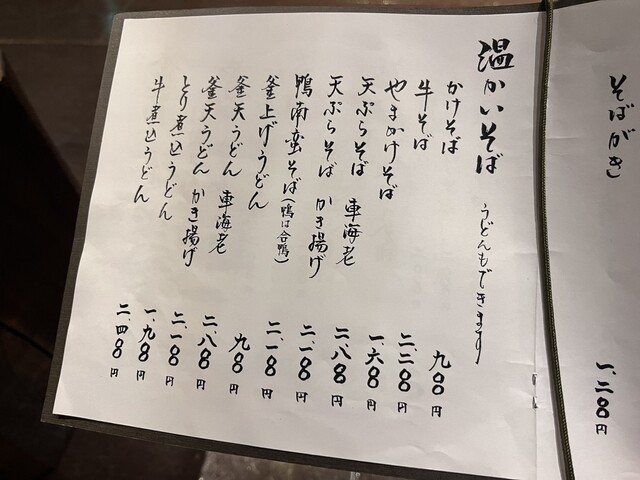 そばがき 一、二〇〇円
温かいそば うどんもできます
かけそば 九〇〇円
牛そば 二、二〇〇円
やまかけそば 一、六〇〇円
天ぷらそば 車海老 二、八〇〇円
天ぷらそば かき揚げ 二、一〇〇円
鴨南蛮そば(鴨は合鴨) 二、一〇〇円
釜上げうどん 九〇〇円
釜天うどん 車海老 二、八〇〇円
釜天うどん かき揚げ 二、一〇〇円
とり煮込うどん 一、九〇〇円
牛煮込うどん 二、四〇〇円